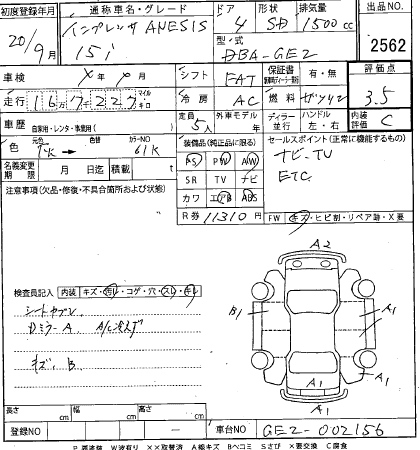 初度登録年月 通称車名・グレード ドア 形状 排気量 出品NO
20/9月 インプレッサ ANESIS 4 SD 1500cc
15i 型・式 DBA-GE2 2562
車検 X年 P月 シフト FAT 保証書 有・無 評価点
走行 16万7千227 マイル キロ 冷房 AC 燃料 ガソリン 3.5
車歴 自家用・レンタ・事業用( ) 定員 5人 外車モデル 年 ディーラー 並行 ハンドル 左・右 内装評価 C
色 元色 色替 カラーNO 61K 装備品(純正品に限る) セールスポイント(正常に機能するもの)
名義変更期限 月 日 迄 積載 t PS PW AW ナビ-TV
SR TV ナビ ETC
注意事項(欠品・修復・不具合箇所および状態) カワ エアB ABS
R券 11310円 FW キズ・ヒビ割・リペア跡・X要
A2
検査員記入 内装 キズ・汚れ・コゲ・穴・スレ・キレ
シートヤブレ B1 A1
Dミラー A A/C冷えず
キズ、B
A1
A1
長さ cm 幅 cm 高さ cm
登録NO 車台NO GE2-002156
P要塗装 W波有り XX取替済 A線キズ Bヘコミ Sさび X要交換 C腐食